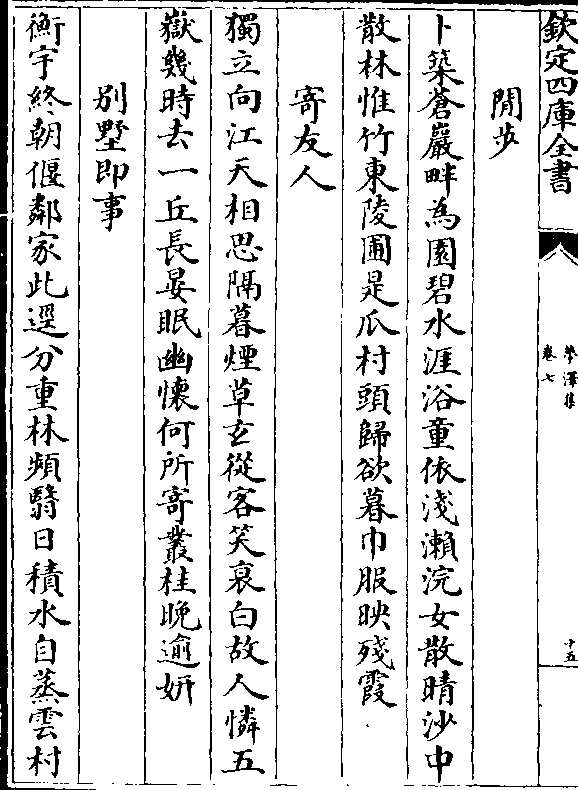 欽定四庫全書
夢澤集
卷七
十五
閒步
卜築蒼巖畔為園碧水涯浴童依淺瀬浣女散晴沙中
散林惟竹東陵圃是瓜村頭歸欲暮巾服映殘霞
寄友人
獨立向江天相思隔暮煙草玄從客笑衰白故人憐五
嶽幾時去一丘長晏眠幽懷何所寄叢桂晚逾妍
別墅即事
衡宇終朝偃鄰家此逕分重林頻翳日積水自蒸雲村